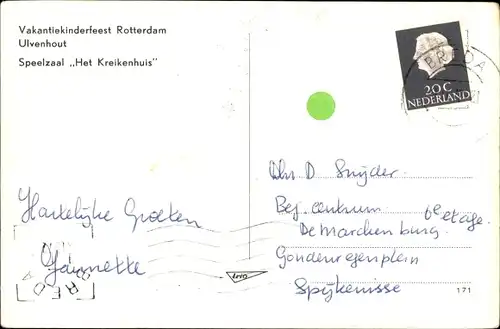 Vakantiekinderfeest Rotterdam
Ulvenhout
Speelzaal „Het Kreikenhuis"
20 C
NEDERLAND
BREDA
Hartelijke Groeten
Jannette
Dhr D Snijder
Bej. centrum 6e etage
De Marckenburg
Gondenregenplein
Spijkenisse
BREDA
171